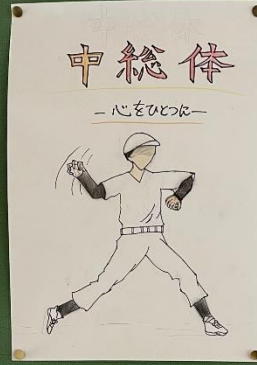 中総体
―心をひとつに―